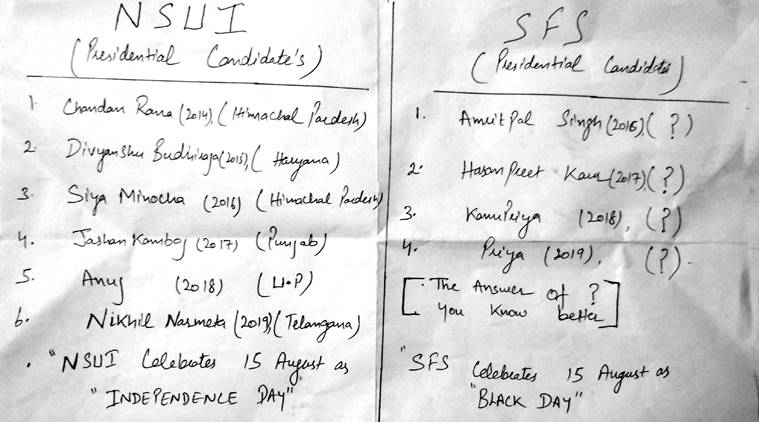 NSUI
(Presidential Candidate's)
1. Chandan Rana (2014), (Himachal Pardesh)
2. Divyanshu Budhiraja (2015), (Haryana)
3. Siya Minocha (2016) (Himachal Pardesh)
4. Jashan Kamboj (2017) (Punjab)
5. Anuj (2018) (U.P)
6. Nikhil Narmeta (2019), (Telangana)
. "NSUI Celebrates 15 August as
"INDEPENDENCE DAY"
SFS
(Presidential Candidates)
1. Amritpal Singh (2016) (?)
2. HasanPreet Kaur (2017), (?)
3. KanuPriya (2018), (?)
4. Priya (2019), (?).
[. The Answer of ?
you know better]
"SFS Celebrates 15 August as
"BLACK DAY"